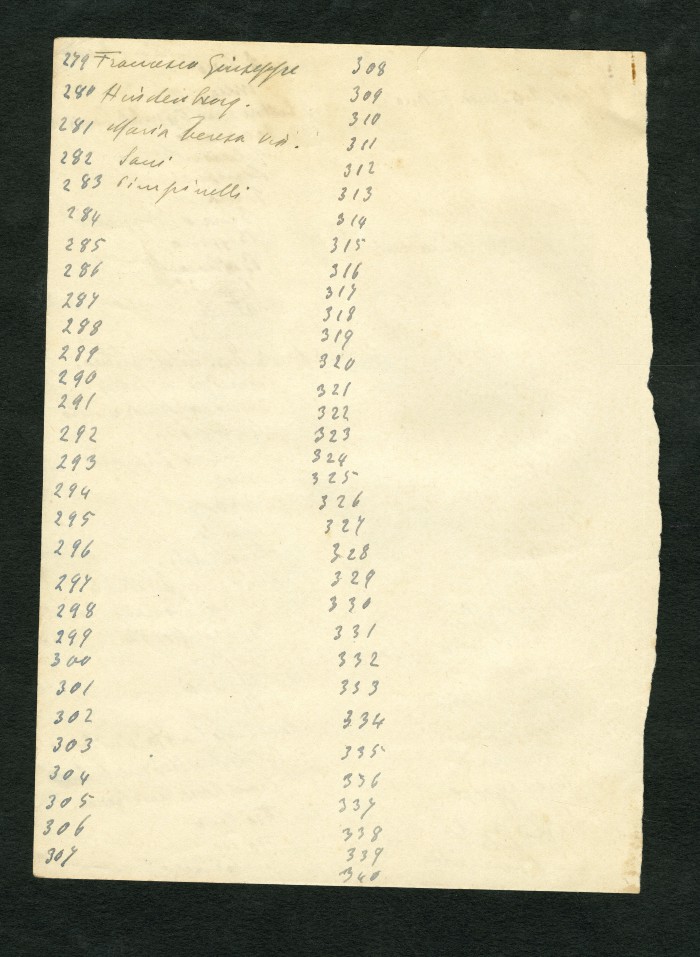 279 Francesco Giuseppe
280 Hindenburg.
281 Maria Teresa
282 Sani
283 Pimpinelli
284
285
286
287
288
289
290
291
292
293
294
295
296
297
298
299
300
301
302
303
304
305
306
307
308
309
310
311
312
313
314
315
316
317
318
319
320
321
322
323
324
325
326
327
328
329
330
331
332
333
334
335
336
337
338
339
340